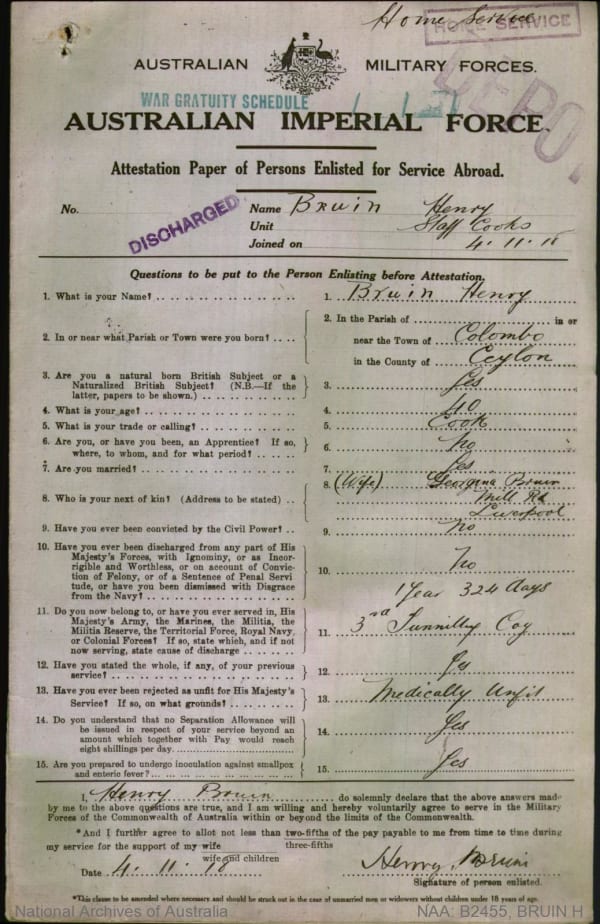 Home Service
HOME SERVICE
AUSTRALIAN MILITARY FORCES.
WAR GRATUITY SCHEDULE
DEPO
AUSTRALIAN IMPERIAL FORCE.
Attestation Paper of Persons Enlisted for Service Abroad.
No. Name Bruin Henry
DISCHARGED
Unit Staff Cooks
Joined on 4.11.18
Questions to be put to the Person Enlisting before Attestation.
1. What is your Name? 1. Bruin Henry
2. In or near what Parish or Town were you born? 2. In the Parish of in or
near the Town of Colombo
in the County of Ceylon
3. Are you a natural born British Subject or a
Naturalized British Subject? (N.B.—If the
latter, papers to be shown.) 3. Yes
4. What is your age? 4. 40
5. What is your trade or calling? 5. Cook
6. Are you, or have you been, an Apprentice? If so,
where, to whom, and for what period? 6. No
7. Are you married? 7. Yes
8. Who is your next of kin? (Address to be stated) 8. (Wife) Georgina Bruin
Mill Rd
Liverpool
9. Have you ever been convicted by the Civil Power? 9. No
10. Have you ever been discharged from any part of His
Majesty's Forces, with Ignominy, or as Incor-
rigible and Worthless, or on account of Convic-
tion of Felony, or of a Sentence of Penal Servi
tude, or have you been Dismissed with Disgrace
from the Navy? 10. No
1 Year 324 days
11. Do you now belong to, or have you ever served in, His
Majesty's Army, the Marines, the Militia, the
Militia Reserve, the Territorial Force, Royal Navy,
or Colonial Forces? If so, state which, and if not
now serving, state cause of discharge 11. 3rd Tunnilling Coy
12. Have you stated the whole, if any, of your previous
service? 12. Yes
13. Have you ever been rejected as unfit for His Majesty's
Service? If so, on what grounds? 13. Medically Unfit
14. Do you understand that no Separation Allowance will
be issued in respect of your service beyond an
amount which together with Pay would reach
eight shillings per day. 14. Yes
15. Are you prepared to undergo inoculation against smallpox
and enteric fever? 15. Yes
I, Henry Bruin do solemnly declare that the above answers made
by me to the above questions are true, and I am willing and hereby voluntarily agree to serve in the Military
Forces of the Commonwealth of Australia within or beyond the limits of the Commonwealth.
*And I further agree to allot not less than two-fifths of the pay payable to me from time to time during
three-fifths
my service for the support of my wife
wife and children
Date 4.11.18 Henry Bruin
Signature of person enlisted.
*This clause to be amended where necessary and should be struck out in the case of unmarried men or widowers without children under 18 years of age.
National Archives of Australia NAA: B2455, BRUIN H